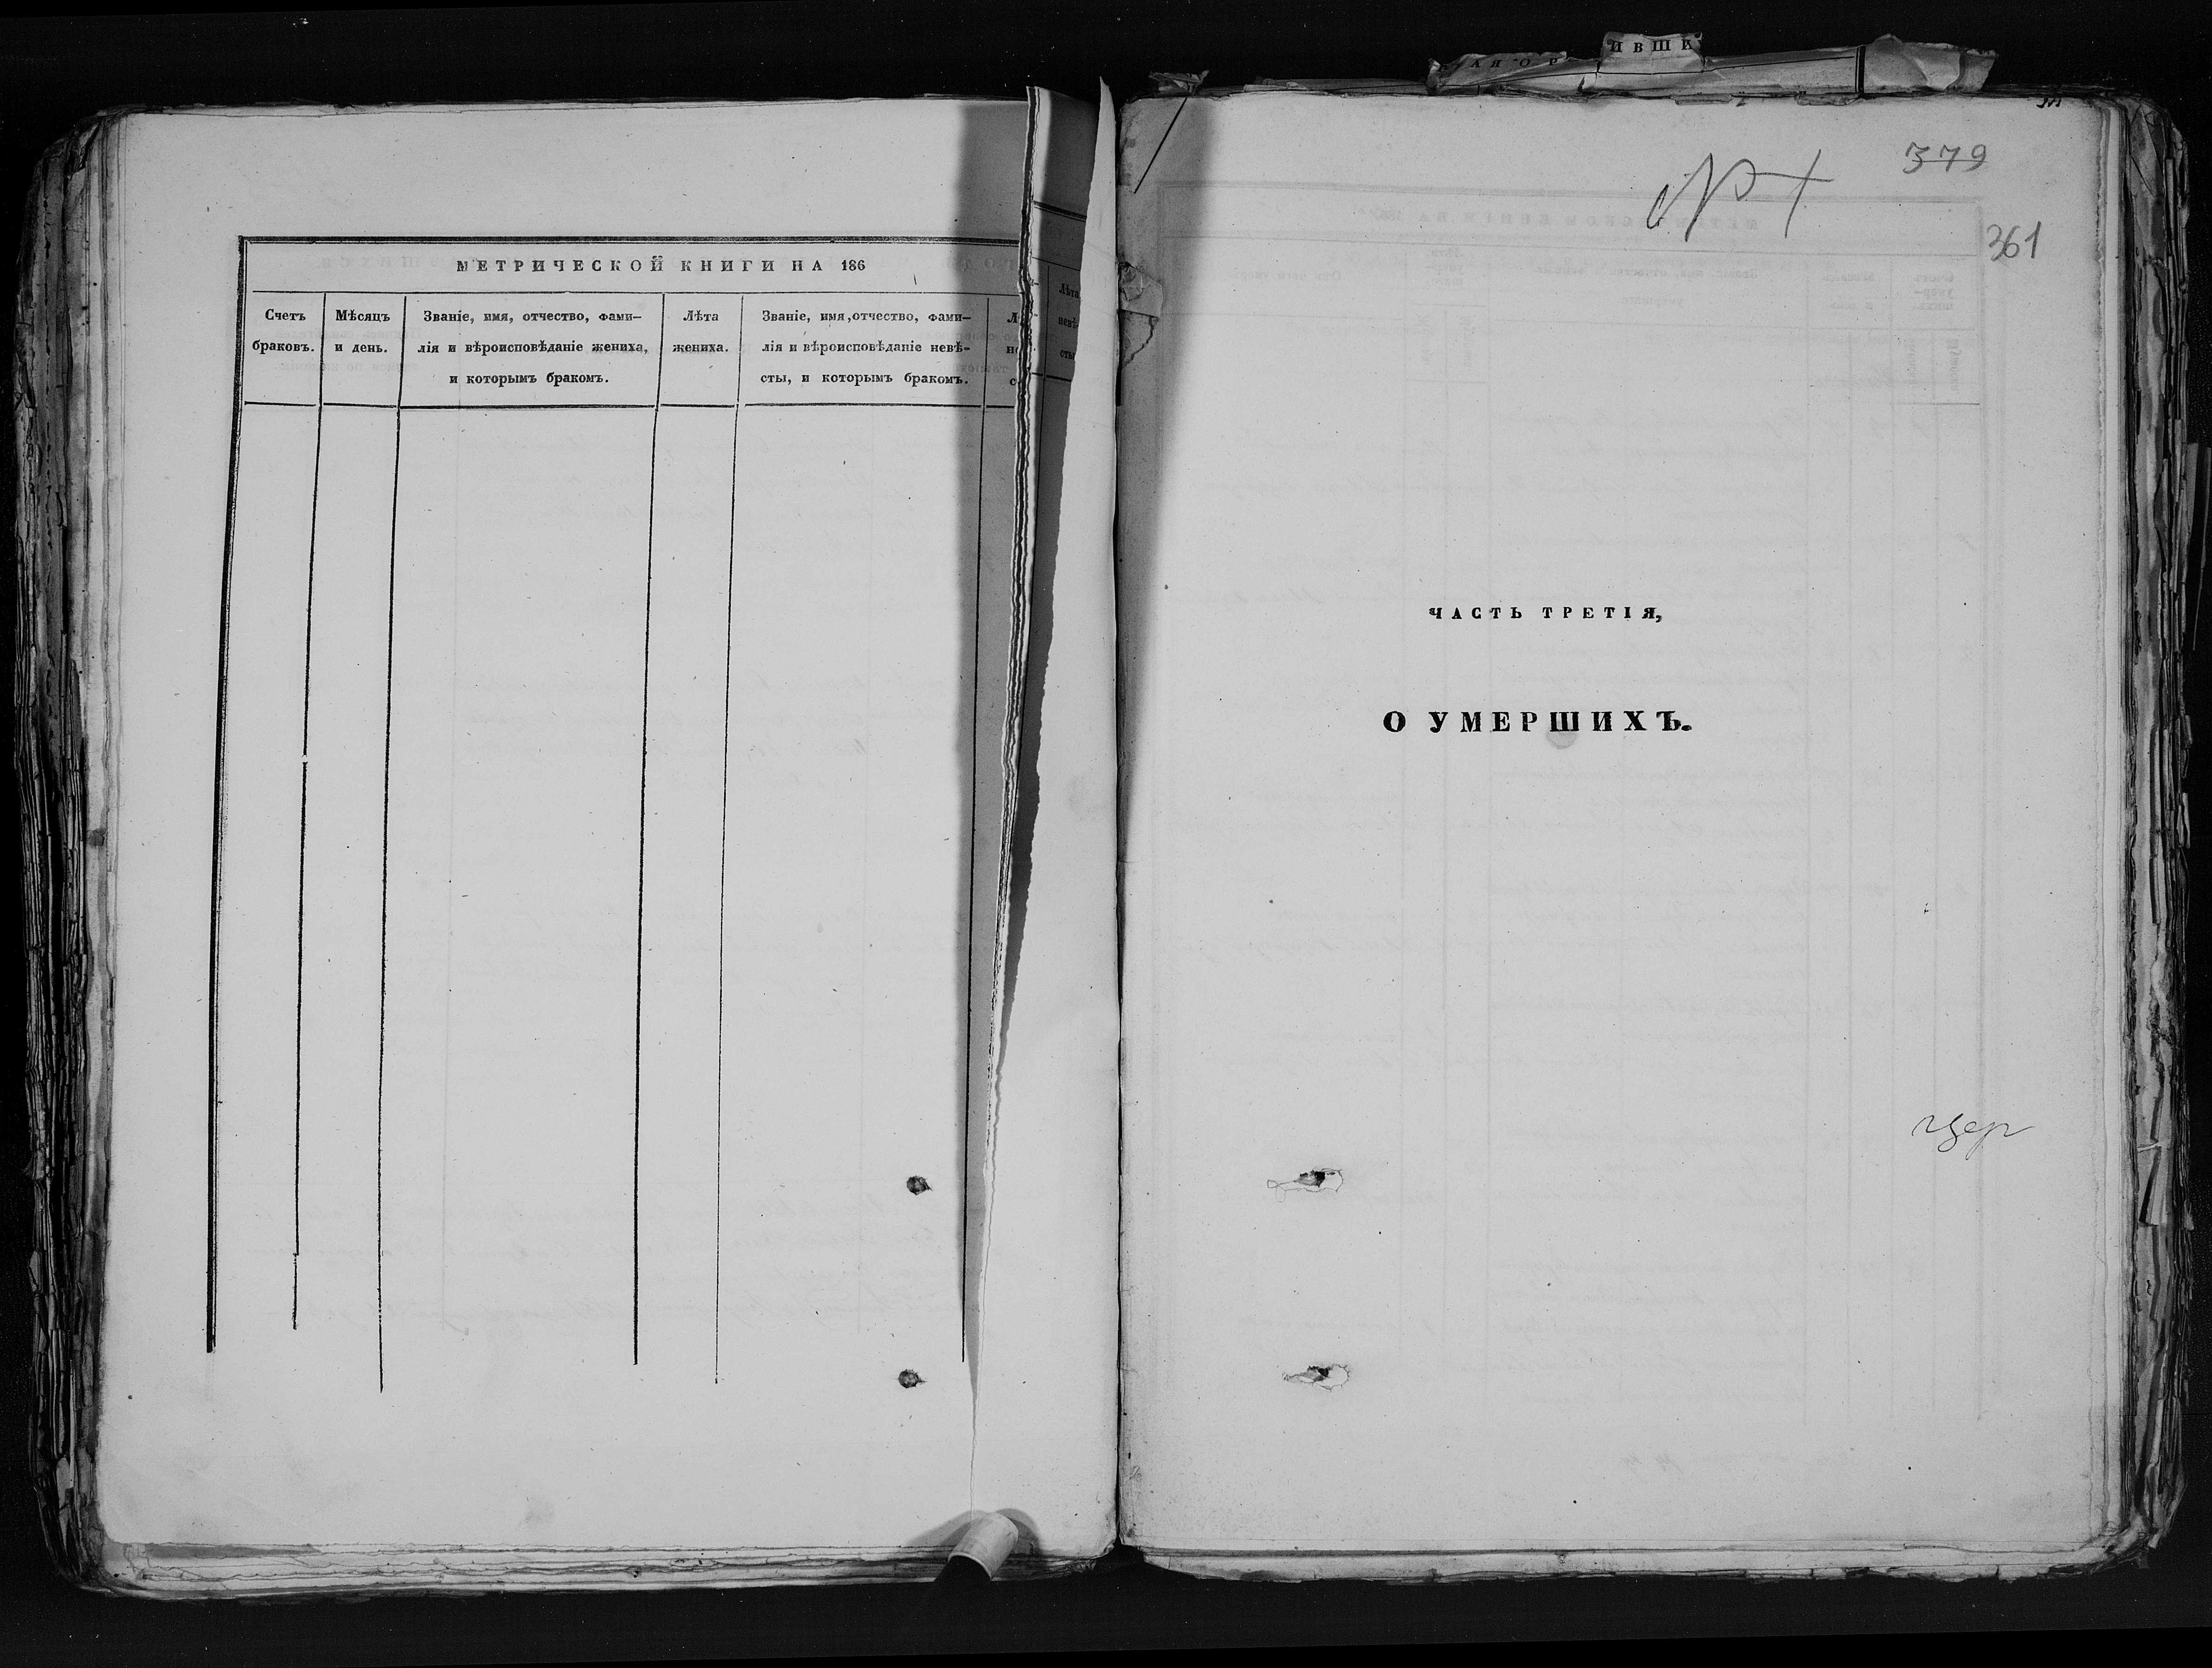 МЕТРИЧЕСКОЙ КНИГИ НА 186
Счетъ
браковъ.
Мѣсяцъ
и день.
Званіе, имя, отчество, фами–
лія и вѣроисповѣданіе жениха,
и которымъ бракомъ.
Лѣта
жениха.
Званіе, имя, отчество, фами–
лія и вѣроисповѣданіе невѣ–
сты, и которымъ бракомъ.
Лѣта
невѣ
сты
ИВШИ
379
361
ЧАСТЬ ТРЕТІЯ,
О УМЕРШИХЪ.